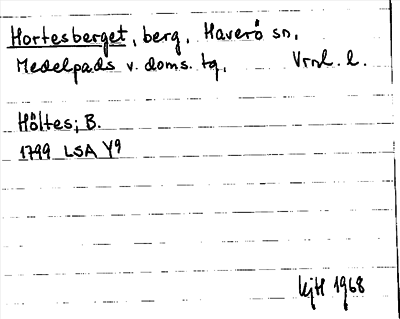 Hortesberget, berg, Haverö sn,
Medelpads v. doms. tg, Vrnl. l.
Håltes; B.
1799 LSA Y9
kjH 1968